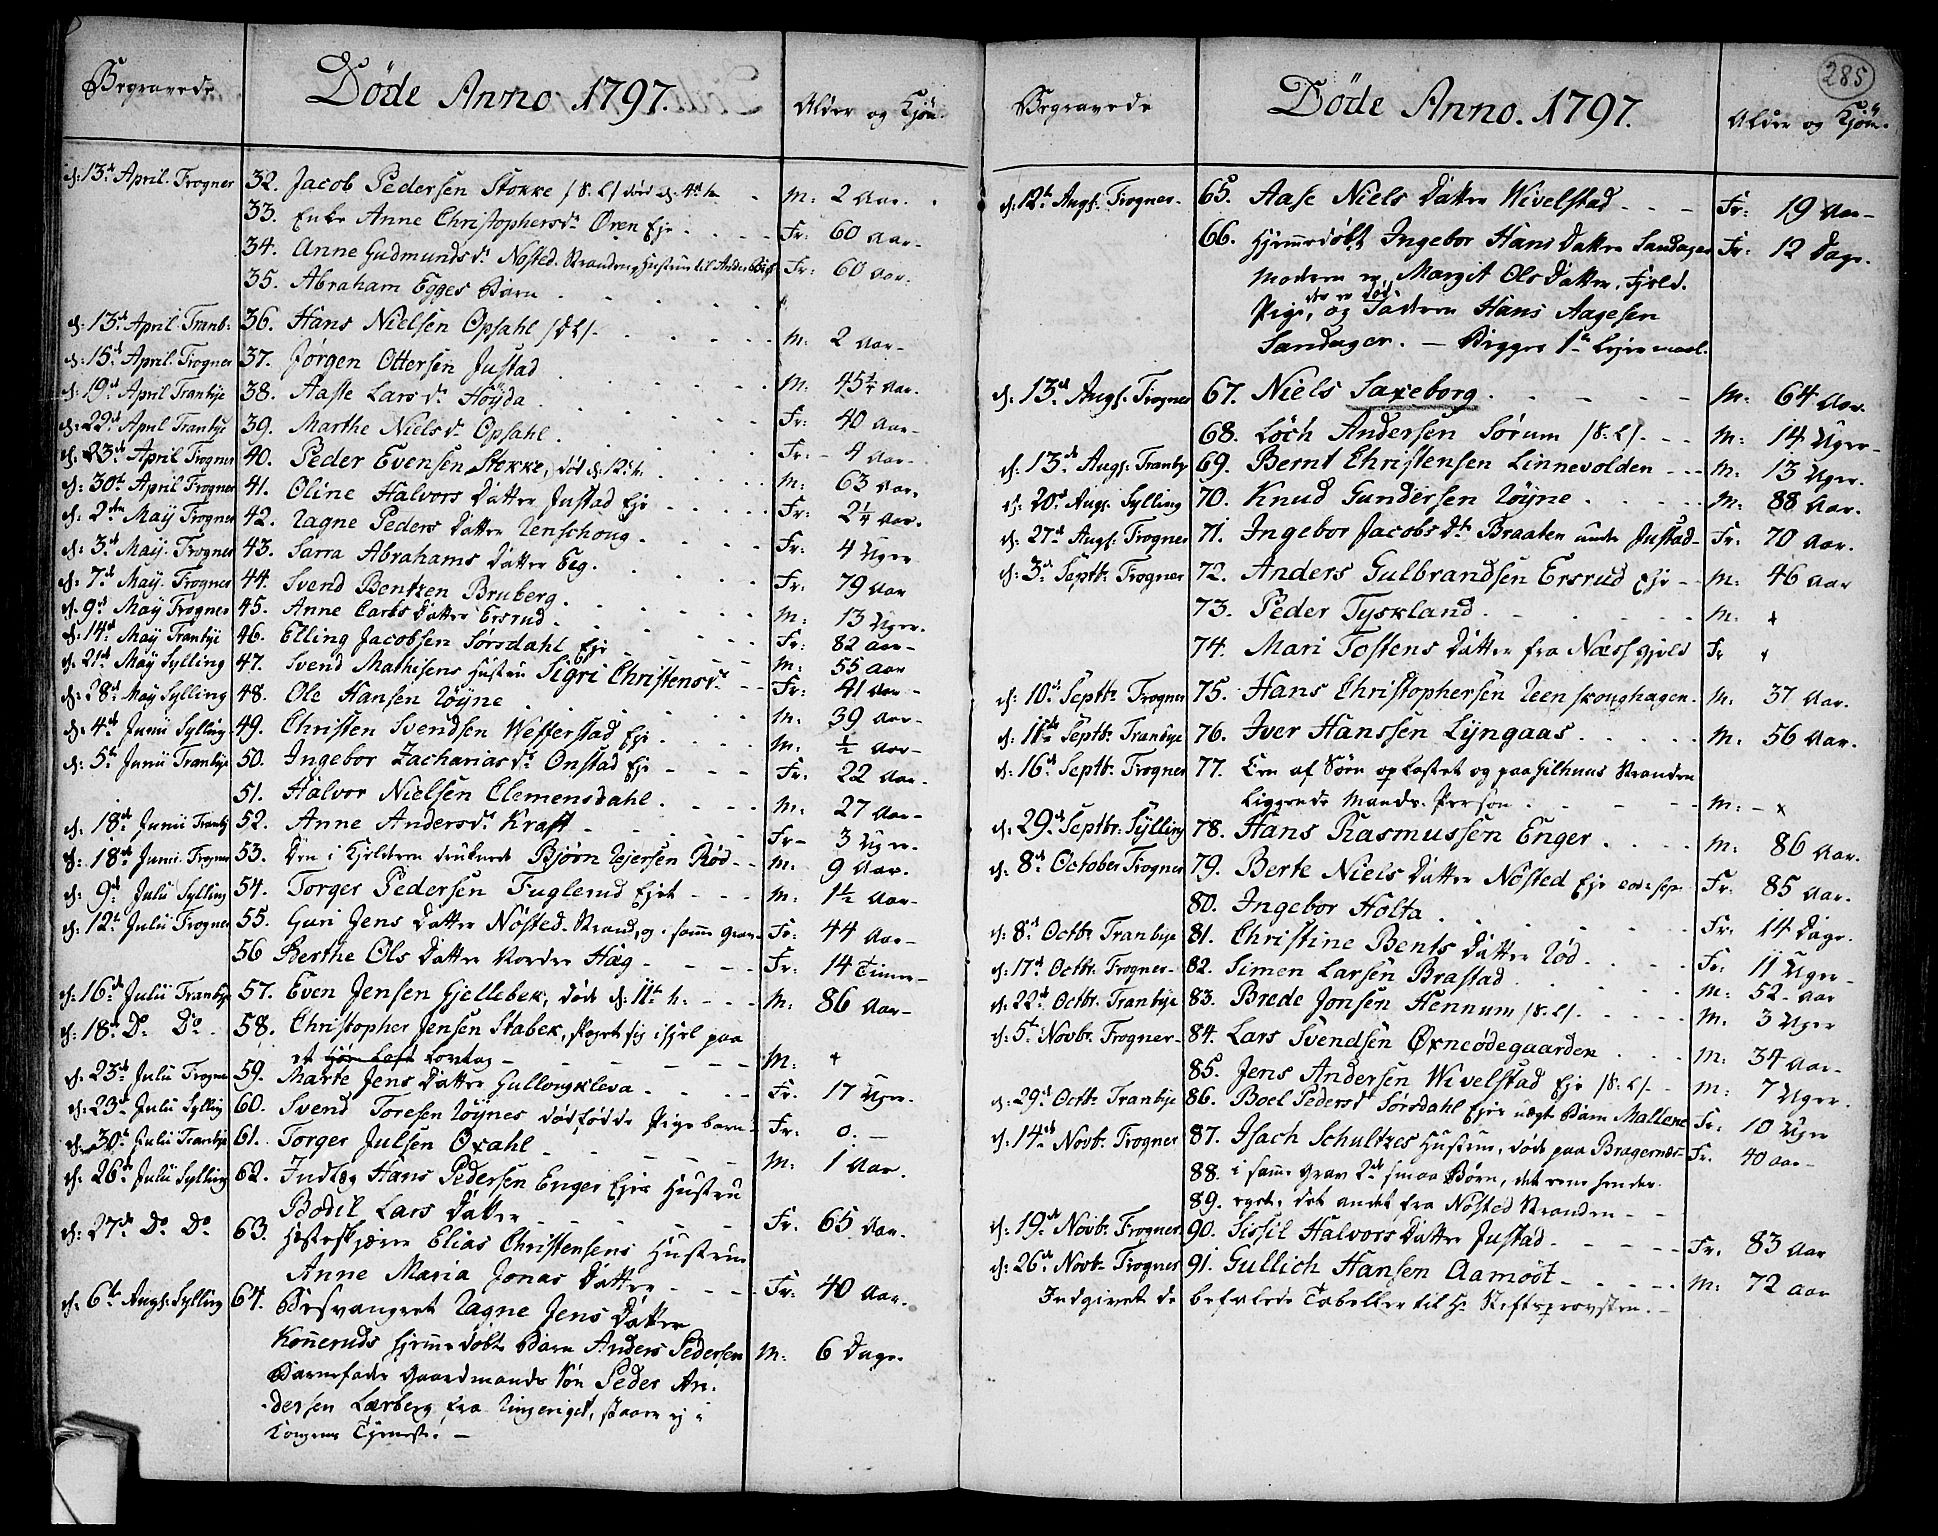 Begravede
Døde Anno 1797.
Alder og Kjøn.
d: 13de April. Frogner 32. Jacob Pedersen Stokke /S:L/ død d: 4de h. M: 2 Aar.
33. Enke Anne Christophersdr Øren Eje Fr: 60 Aar
34. Anne Gudmundsdr Nøsted-Stranden, Hustrue til Fr: 60 Aar.
35. Abraham Egges Barn
d: 13d April. Tranb: 36. Hans Nielsen Opsahl M: 2 Aar
d: 15d April. Frogner 37. Jørgen Ottersen Justad M: 45 Aar.
d: 19d April Tranbye 38. Aasse Larsdr Høyda Fr: 40 Aar
d: 22de April Tranbye 39. Marthe Nielsdr Opsahl Fr: 4 Aar
d: 23de April Frogner 40. Peder Evensen Stokke, død d: 12: h. M: 63 Aar.
d: 30te April Frogner 41. Oline Halvors Datter Justad Eje Fr: 2¼ Aar.
d: 2den May Frogner 42. Ragne Peders Datter Renschoug Fr: 4 Uger
d: 3d May. Frogner 43. Sarra Abrahams Datter Eeg. Fr: 79 Aar
d: 7d May. Frogner 44. Svend Bentzen Bruberg. M: 13 Uger.
d: 9d May Frogner 45. Anne Carls Datter Ersrud Fr: 82 Aar
d: 14d May Tranbye 46. Elling Jacobsen Sørsdahl Eje M: 55 Aar
d: 21de May Sylling 47. Svend Mathisens Hustru Sigri Christensdr Fr: 41 Aar
d: 28de May Sylling 48. Ole Hansen Røyne M: 39 Aar
d: 4d Junii Sylling 49. Christen Svendsen Wefferstad Eje M: ½ Aar
d: 5t Junii Tranbye 50. Ingebor Zachariasdr Onstad Eje Fr: 22 Aar.
51. Halvor Nielsen Clemensdahl. M: 27 Aar
d: 18de Junii Tranb 52. Anne Andersdr Kraft Fr 3 Uger.
d: 18de Junii Frogner 53. Den i Kjelderen druknede Bjørn Rejersen Rød M: 9 Aar.
d: 9d Julii Sylling 54. Torger Pedersen Fuglerud Ejet M: 1½ Aar
d: 12te Julii Frogner 55. Guri Jens Datter Nøsted-Strand, og i samme Grav Fr: 44 Aar
56 Berthe Ols Datter Nordre Hæg Fr: 14 Timer
d: 16de Julii Tranbye 57. Even Jensen Gjellebek, døde d: 11te h. M: 86 Aar
d: 18de Do Do 58. Christopher Jensen Stabek, skyet sig ihjel paa
et Lovdag M:
d: 23de Julii Frogner 59. Marte Jens Datter Gullougkleva Fr: 17 Uger.
d: 23de Julii Sylling 60. Svend Toresen Røynes dødfødde Pige barn Fr: 0.
d: 30te Julii Tranbye 61. Torger Julsen Oxahl M: 1 Aar.
d: 26de Julii Sylling 62. Indlæg Hans Pedersen Enger Ejes Hustru
Bodil Lars Datter Fr: 65 Aar.
d: 27de Do Do 63. Hesteskjære Elias Christensens Hustrue
Anne Maria Jonas Datter Fr: 40 Aar.
d: 6te Augs. Sylling 64. Besvangret Ragne Jens Datter
Konneruds hjemmedøbt Barn Anders Pedersen M: 6 Dage.
Barnefader Gaardmands Søn Peder An-
dersen Lærberg fra Ringeriget, staaer ej i
Kongens Tjeneste.
285
Begravede
Døde Anno. 1797.
Alder og Kjøn.
d: 12te Augs. Frogner 65. Aase Niels Datter Wivelstad Fr: 19 Aar
66. Hjemmedøbt Ingebor Hans Datter Sandager Fr: 12 Dage.
Moderen er Margit Ols Datter Fjeld.
der er død
Pige, og Faderen Hans Aagesen
Sandager. — Begges 1te Lejermaal.
d: 13de Augs. Frogner 67. Niels Saxeborg M: 64 Aar.
68. Løch Andersen Sørum /S:L/. M: 14 Uger
d: 13de Augs. Tranby 69. Bernt Christensen Linnevolden M: 13 Uger.
d: 20de Augs. Sylling 70. Knud Gundersen Røyne M: 88 Aar.
d: 27de Augs. Frogner 71. Ingebor Jacobs Dtr Braaten under Justad Fr: 70 Aar.
d: 3d Septbr Frogner 72. Anders Gulbrandsen Ersrud Eje M: 46 Aar
73. Peder Tyskland M:
74. Mari Tostens Datter fra Næss gjeld Fr
d: 10de Septbr Frogner 75. Hans Christophersen Reenskoughagen M: 37 Aar.
d: 11te Septbr Tranbye 76. Iver Hanssen Lyngaas M: 56 Aar.
d: 16de Septbr. Frogner 77. Een af Søen opkastet og paa Gilhuus Stranden
liggende Mands-Person M: x
d: 29de Septbr. Sylling 78. Hans Rasmussen Enger M: 86 Aar.
d: 8de October Frogner 79. Berte Niels Datter Nøsted Eje eod: sep. Fr: 85 Aar.
80. Ingebor Holta Fr: 14 Dage.
d: 8de Octbr Tranbye 81. Christine Bents Datter Rød Fr: 11 Uger
d: 17de Octbr. Frogner 82. Simen Larsen Brastad M: 52 Aar
d: 22de Octbr. Tranbye 83. Brede Jonsen Hennum /S:L/. M: 3 Uger
d: 5t Novbr. Frogner 84. Lars Svendsen Øxneødegaarden M: 34 Aar
85. Jens Andersen Wivelstad Eje /S:L/ M: 7 Uger.
d: 29de Octbr Tranbye 86. Boel Pedersdr Sørsdahl Ejes uægt Barn Mallene Fr: 10 Uger
d: 14de Novb. Frogner 87. Isach Schultzes Hustrue, døde paa Bragernæs Fr: 40 Aar
88. i samme Grav 2de smaa Børn, det eene hendes
89. eget, det andet fra Nøsted Stranden
d: 19de Novbr Frogner 90. Sissil Halvors Datter Justad Fr: 83 Aar
d: 26de Novbr Frogner 91. Gullich Hansen Aamodt M: 72 Aar
Indgivet de befalede Tabeller til Hr Stiftsprovsten.